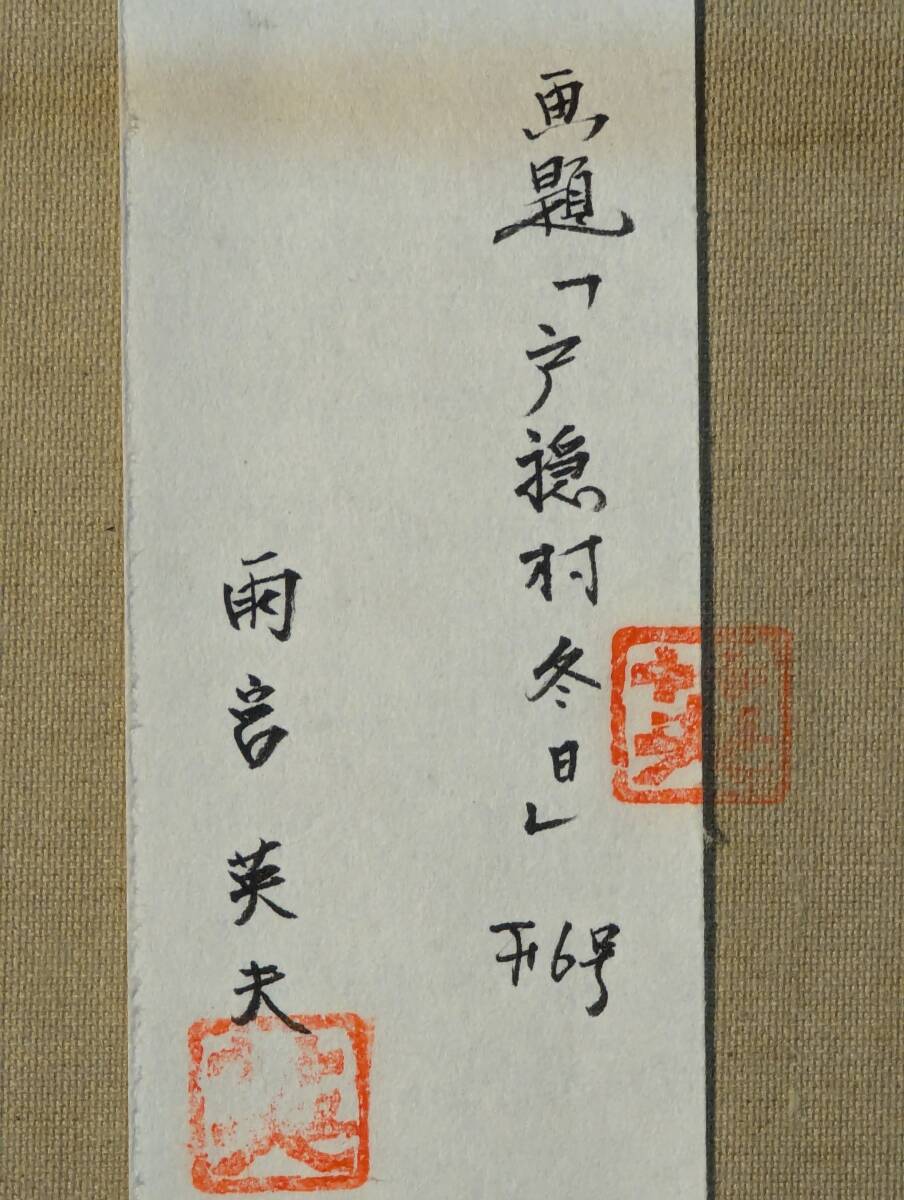 画題「戸隠村冬日」 F6号
雨宮 英夫